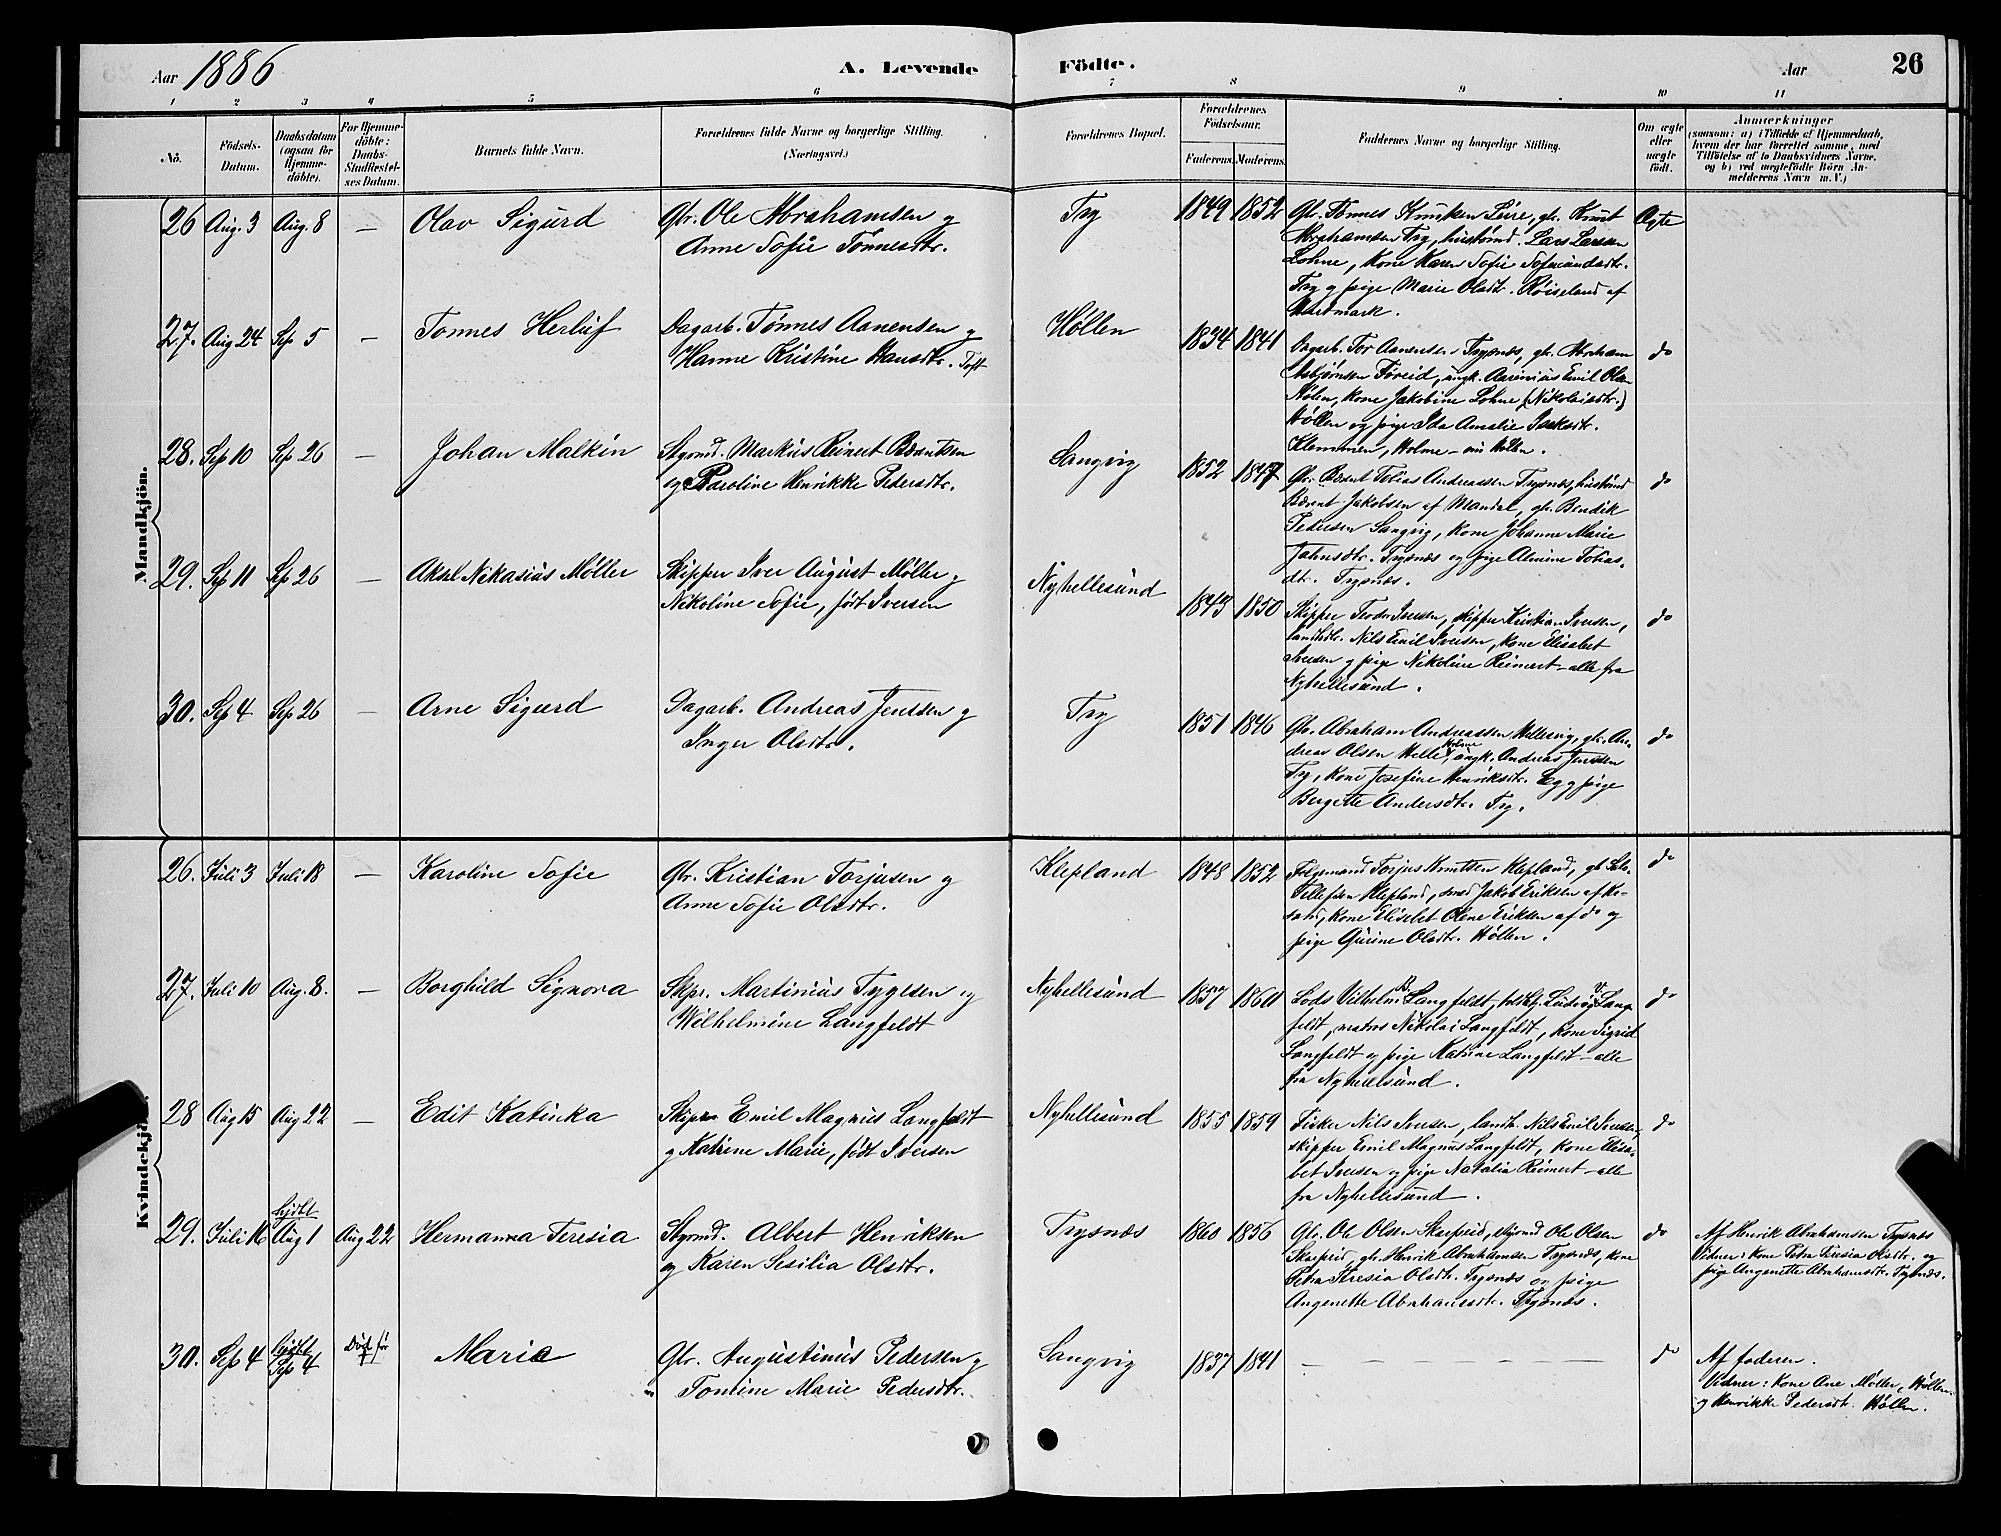 Aar 1886
A. Levende Födte.
Aar
26
1 2 3 4 5 6 7 8 9 10 11
No.
Födsels-Datum.
Daabsdatum (ogsaa for Hjemme-döbte).
For Hjemme-döbte: Daabs-Stadfæstel-ses Datum.
Barnets fulde Navn.
Forældrenes fulde Navne og borgerlige Stilling. (Næringsvei.)
Forældrenes Bopæl.
Forældrenes Födselsaar.
Faderens. Moderens.
Faddernes Navne og borgerlige Stilling.
Om ægte eller uægte födt.
Anmærkninger
(saasom: a) i Tilfælde af Hjemmedaab, hvem der har forrettet samme, med Tilföielse af to Daabsvidners Navne, og b) ved uægtefödte Börn An-melderens Navn m. V.)
Mandkjön.
26 Aug. 3 Aug. 8 — Olav Sigurd
Gbr. Ole Abrahamsen og
Anne Sofie Tønnesdtr.
Try 1849 1852
Gbr. Tønnes Knutsen Leire, gbr. Knut
Abrahamsen Try, husmd. Lars Larsen
Lohne, kone Karen Sofie
Try og pige Marie Olsdtr. Røiseland af
Hartmark.
Ægte
27. Aug 24 Sep 5 — Tønnes Herluf
Dagarb. Tønnes Aanensen og
Hanne Kristine Hansdtr. Toft
Høllen 1834 1841
Dagarb. Tor Aanensen Trysnes, gbr. Abraham
Asbjørnsen Føreid, ungk. Emil Olsen
Hølen, kone Jakobine Lohne (Nikolaisdtr.)
Høllen og pige Ida Amalie Isaksdtr.
Klemmen, Holme —
do
28. Sep 10 Sep 26 — Johan Malkin
Styrmd. Markus Reinert Berentsen
og Karoline Henrikke Pedersdtr.
Langvig 1852 1847
Gbr. Berent Tobias Andreassen Trysnes, husmd
Berent Jakobsen af Mandal, gbr. Bendik
Pedersen Langvig, kone Johanne Marie
Jahnsdtr. Trysnes og pige Almine Tobias-
dtr. Trysnes.
do
29. Sep 11 Sep 26 — Aksel Nikasius Møller
Skipper Iver August Møller og
Nikoline Sofie, født Iversen
Nyhellesund 1843 1850
Skipper Teodor Iversen, skipper Kristian Iversen,
landhdl. Nils Emil Iversen, kone Elisabet
Iversen og pige Nikoline Reimert – alle fra
Nyhellesund.
do
30. Sep 4 Sep 26 — Arne Sigurd
Dagarb. Andreas Jenssen og
Inger Olsdtr.
Try 1851 1846
Gbr. Abraham Andreassen Hellevig, gbr. An-
dreas Olsen Helle Holme, ungk. Andreas Jenssen
Try, kone Josefine Henriksdtr. Leg og pige
Bergette Andersdtr. Try.
do
Kvindekjön.
26. Juli 3 Juli 18 — Karoline Sofie
Gbr. Kristian Torjusen og
Anne Sofie Olsdtr.
Klepland 1848 1852
Følgemand Torjus Knutsen Klepland, gb.
Tellefsen Klepland, smed Jakob Eriksen af K-
sand, kone Elisabet Olene Eriksen af do og
pige Gurine Olsdtr. Høllen.
do
27. Juli 10 Aug. 8. — Borghild Signora
Skpr. Martinius Tygesen og
Wilhelmine Langfeldt
Nyhellesund 1857 1860
Lods Vilhelm B. Langfeldt, Ludvig V. Lang-
feldt, matros Nikolai Langfeldt, kone Sigrid
Langfeldt og pige Katrine Langfeldt – alle
fra Nyhellesund.
do
28 Aug 15 Aug 22 — Edit Katinka
Skipr Emil Magnus Langfeldt
og Katrine Marie, født Iversen
Nyhellesund 1855 1859
Fisker Nils Iversen, landh. Nils Emil Iversen,
skipper Emil Magnus Langfeldt, kone Elisa-
bet Iversen og pige Natalia Reimert – alle
fra Nyhellesund.
do
29. Juli 16 hjdbt Aug 1 Aug 22 Hermanna Teresia
Styrmd. Albert Henriksen
og Karen Sesilia Olsdtr.
Trysnæs 1860 1856
Gbr. Ole Olsen Skarpeid, styrmd Ole Olsen
Skarpeid, gbr. Henrik Abrahamsen Trysnæs, kone
Petra Teresia Olsdtr. Trysnæs og pige
Angenette Abrahamsdtr. Trysnæs.
do
Af Henrik Abrahamsen Trysnæs
Vidner: kone Petra Teresia Olsdtr. og
pige Angenette Abrahamsdtr. Trysnæs.
30. Sep 4 hjdbt Sep 4 Død før Marie
Gbr. Augustinus Pedersen og
Tomine Marie Pedersdtr.
Langvig 1837 1841
— — — — — —
do
Af faderen.
Vidner: Kone Ane Møller, Høllen
og Henrikke Pedersdt. Høllen.